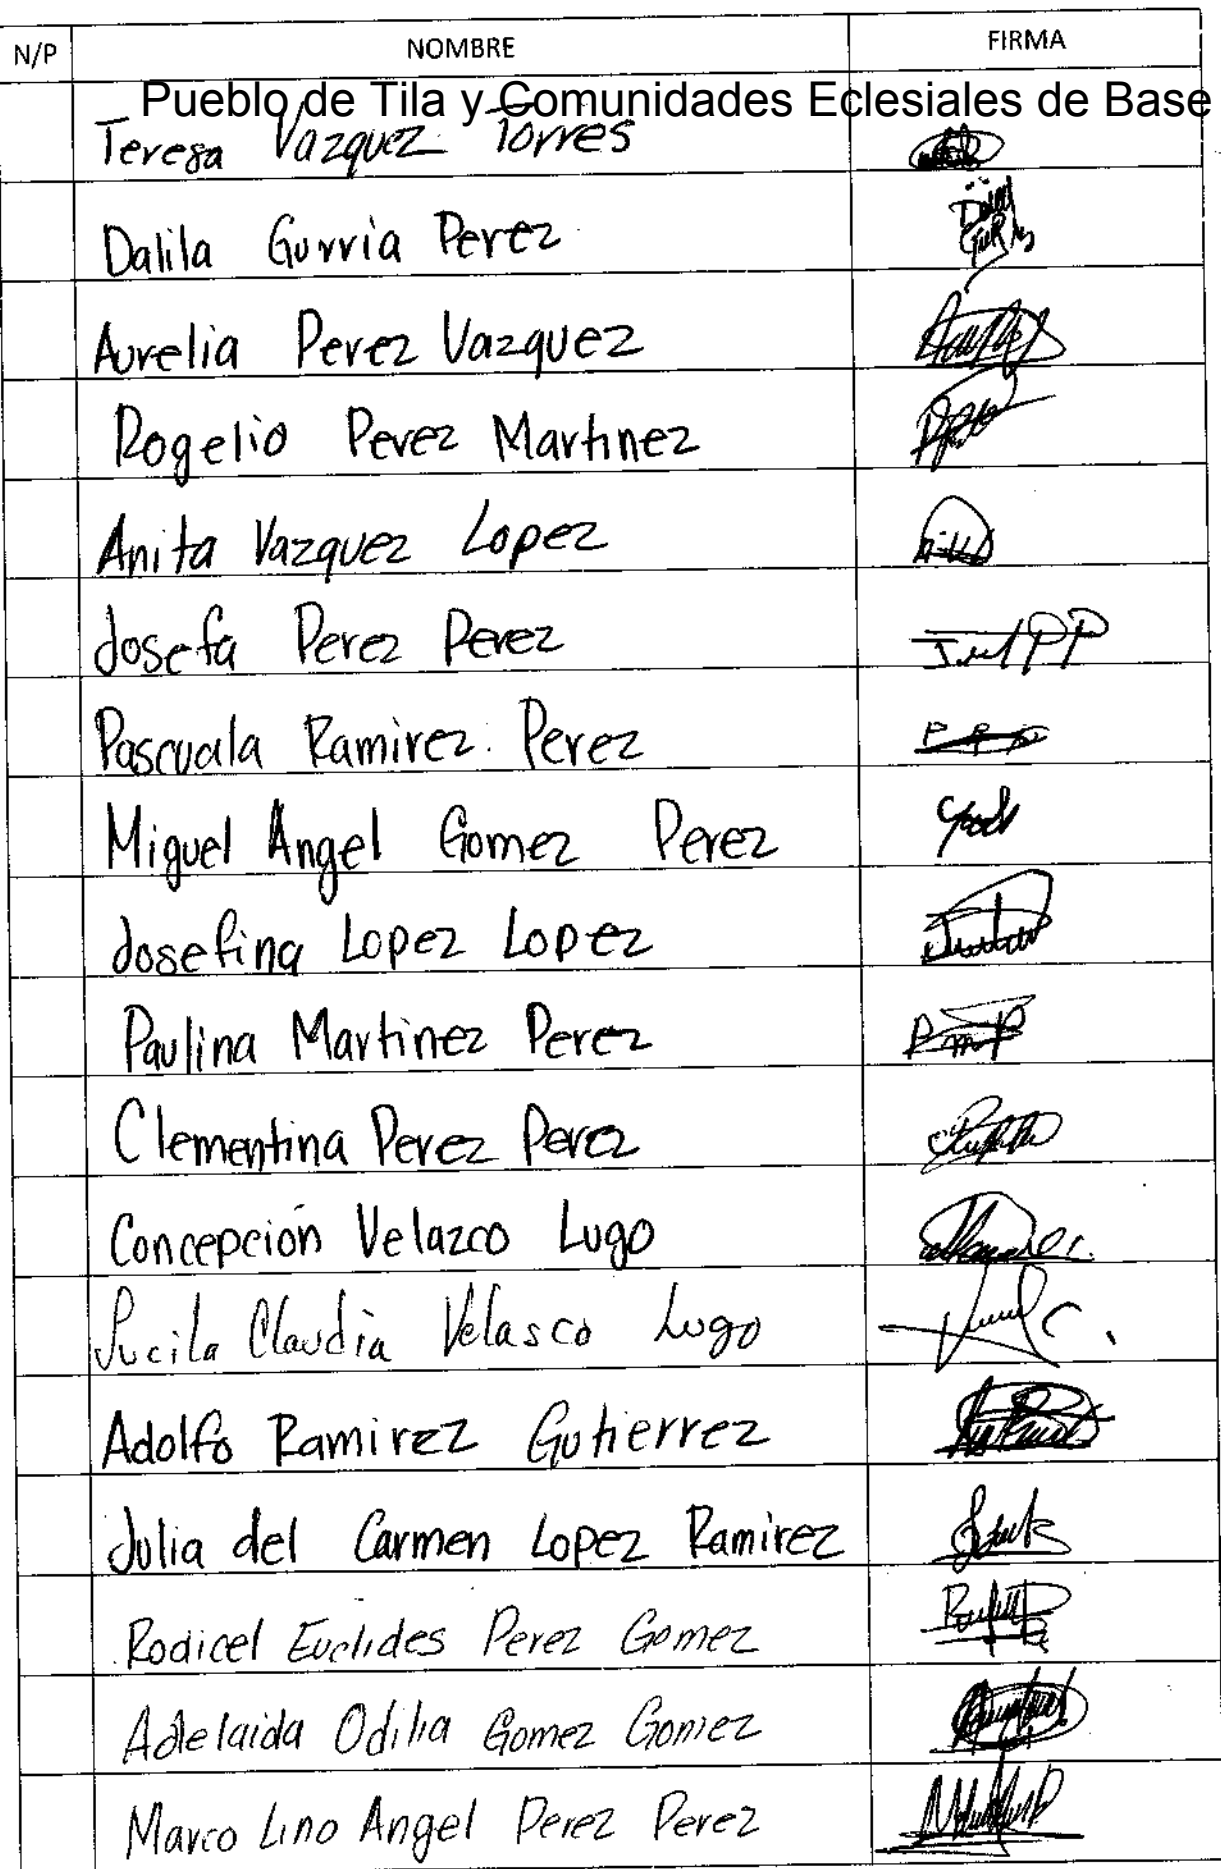 N/P NOMBRE FIRMA
Pueblo de Tila y Comunidades Eclesiales de Base
Teresa Vazquez Torres
Dalila Gurria Perez
Aurelia Perez Vazquez
Rogelio Perez Martinez
Anita Vazquez Lopez
Josefa Perez Perez
Pascuala Ramirez Perez
Miguel Angel Gomez Perez
Josefina Lopez Lopez
Paulina Martinez Perez
Clementina Perez Perez
Concepción Velazco Lugo
Lucila Claudia Velasco Lugo
Adolfo Ramirez Gutierrez
Julia del Carmen Lopez Ramirez
Rodicel Euclides Perez Gomez
Adelaida Odilia Gomez Gomez
Marco Lino Angel Perez Perez